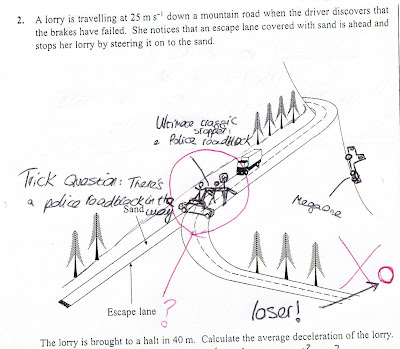 2. A lorry is travelling at 25 m s⁻¹ down a mountain road when the driver discovers that
the brakes have failed. She notices that an escape lane covered with sand is ahead and
stops her lorry by steering it on to the sand.
Ultimate traffic
stopper:
a Police roadblock
Trick Question: There's
a police roadblock in the
way
Sand
MegaOne
Escape lane
?
loser!
The lorry is brought to a halt in 40 m. Calculate the average deceleration of the lorry.